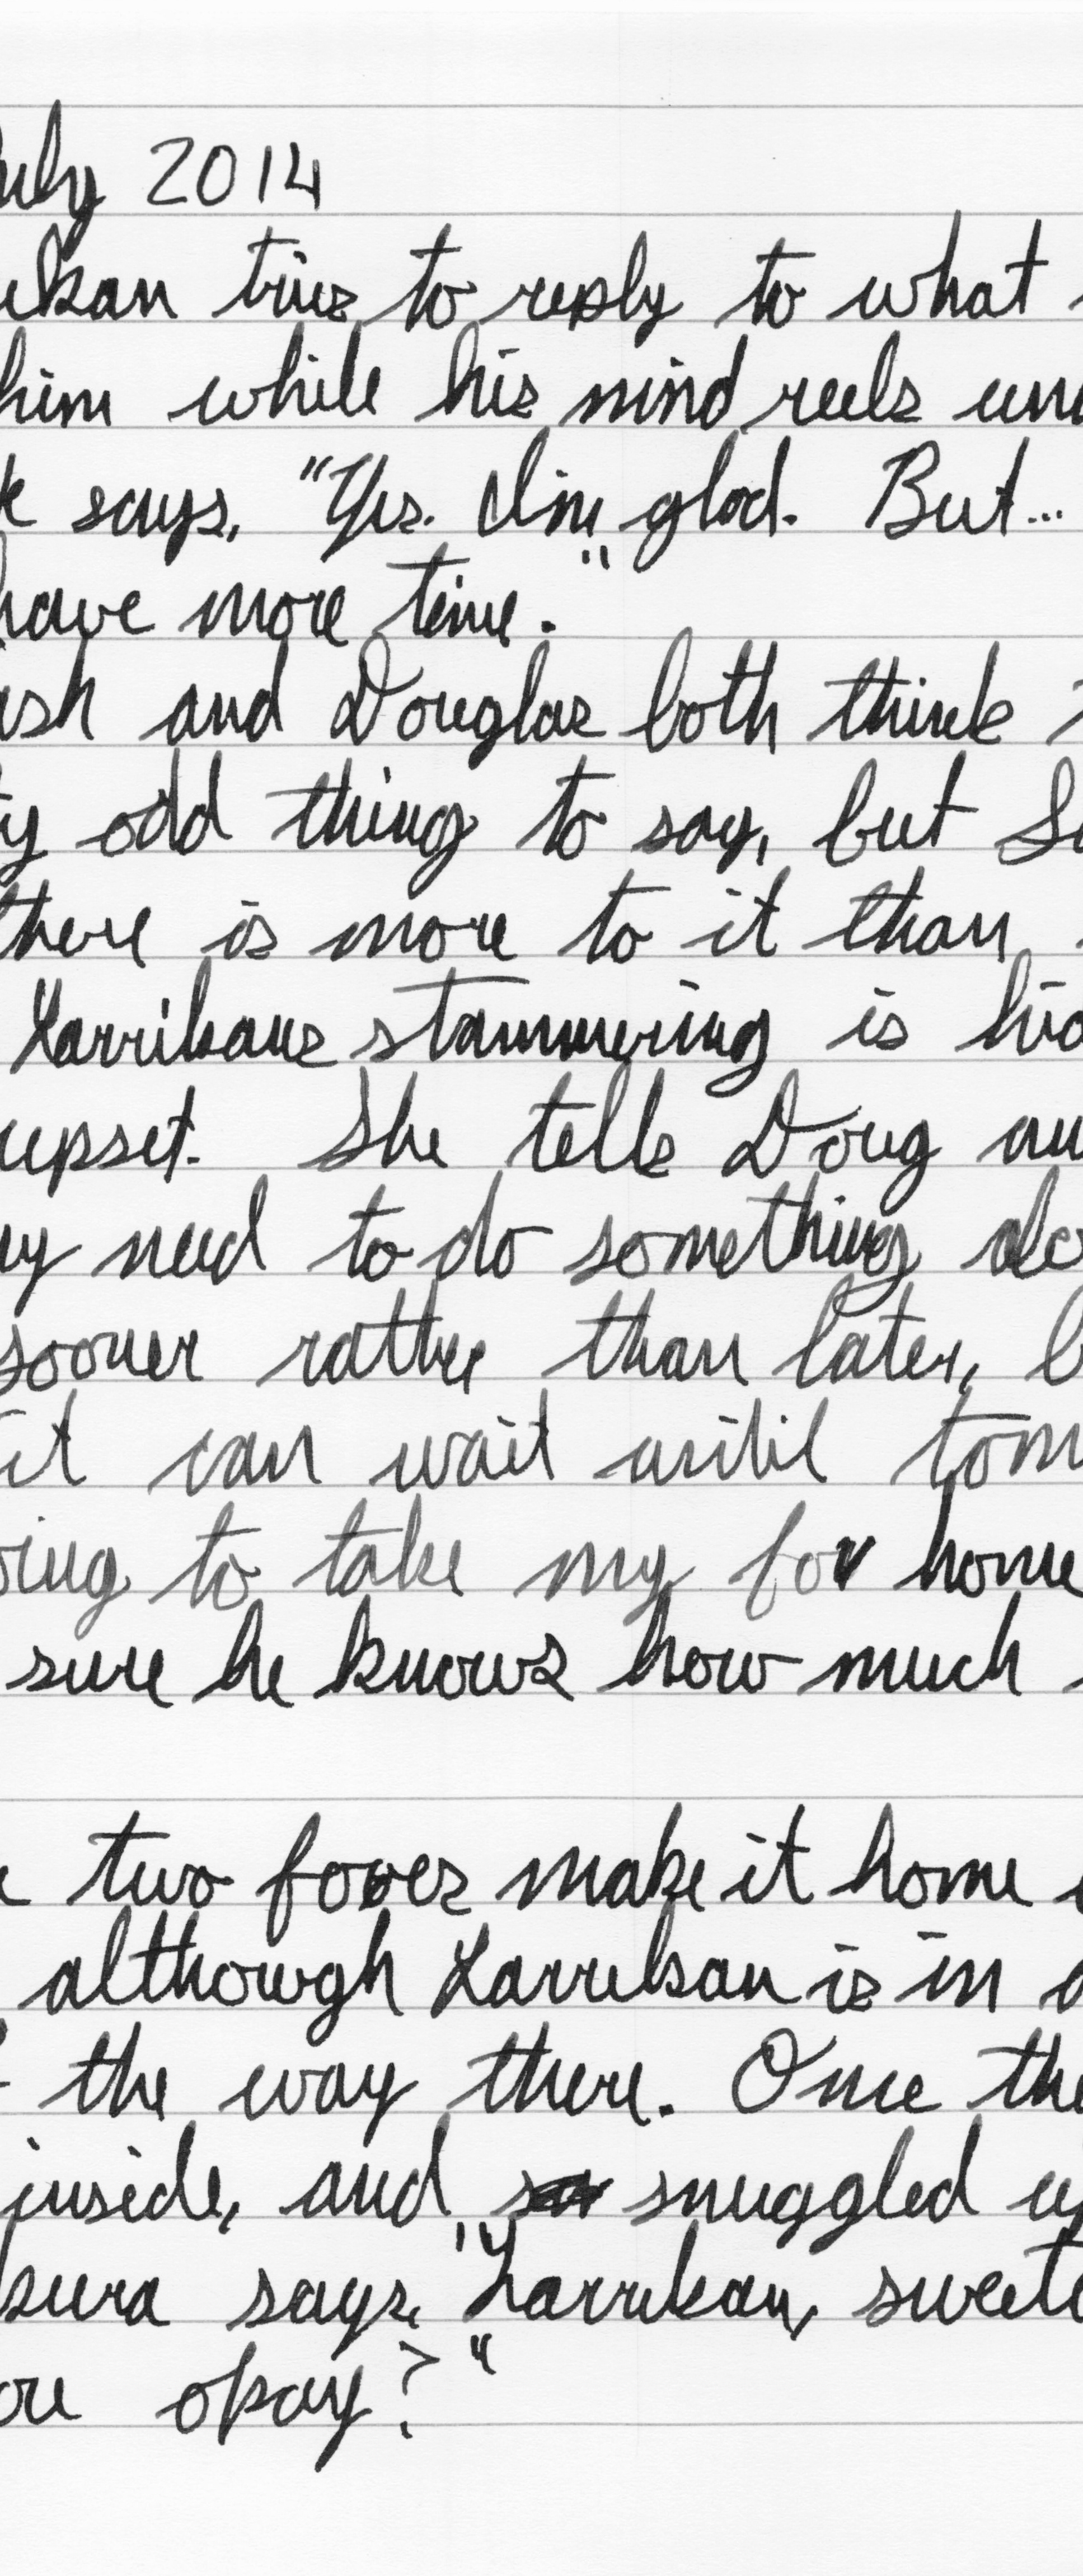 uly 2014
ikan tries to reply to what
him while his mind reels un
says, "Yes. I'm glad. But...
have more time."
ish and Douglas both think
ty odd thing to say, but S
there is more to it than
Larrikans stammering is hid
upset. She tells Doug an
ey need to do something
sooner rather than later, b
it can wait until tom
oing to take my fox home
sure he knows how much
two foxes make it home
although Larrikan is in a
the way there. Once the
inside, and snuggled u
sura says, "Larrikan, sweet
ou okay?"